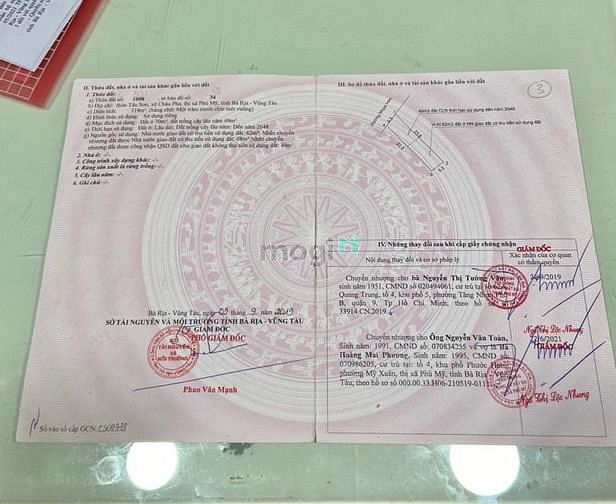 II. Thửa đất, nhà ở và tài sản khác gắn liền với đất
1. Thửa đất:
a) Thửa đất số: 1068 tờ bản đồ số: 34
b) Địa chỉ: thôn Tân Sơn, xã Châu Pha, thị xã Phú Mỹ, tỉnh Bà Rịa - Vũng Tàu
c) Diện tích: 119m², (bằng chữ: Một trăm mười chín mét vuông)
d) Hình thức sử dụng: Sử dụng riêng
đ) Mục đích sử dụng: Đất ở 70m²; đất trồng cây lâu năm 49m²
e) Thời hạn sử dụng: Đất ở: Lâu dài; Đất trồng cây lâu năm: Đến năm 2048
g) Nguồn gốc sử dụng: Nhà nước giao đất có thu tiền sử dụng đất: 62m²; Nhận chuyển
nhượng đất được Nhà nước giao đất có thu tiền sử dụng đất: 08m²; Nhận chuyển
nhượng đất được công nhận QSD đất như giao đất không thu tiền sử dụng đất: 49m²
2. Nhà ở: -/-
3. Công trình xây dựng khác: -/-
4. Rừng sản xuất là rừng trồng: -/-
5. Cây lâu năm: -/-
6. Ghi chú: -/-
Bà Rịa - Vũng Tàu, ngày 03 tháng 9 năm 2019
SỞ TÀI NGUYÊN VÀ MÔI TRƯỜNG TỈNH BÀ RỊA - VŨNG TÀU
KT. GIÁM ĐỐC
PHÓ GIÁM ĐỐC
SỞ
TÀI NGUYÊN
VÀ
MÔI TRƯỜNG
Phan Văn Mạnh
Số vào sổ cấp GCN:
III. Sơ đồ thửa đất, nhà ở và tài sản khác gắn liền với đất
3
49m2 đất CLN thời hạn sử dụng đến năm 2048
mogi
IV. Những thay đổi sau khi cấp giấy chứng nhận
Nội dung thay đổi và cơ sở pháp lý
Xác nhận của cơ quan
có thẩm quyền
GIÁM ĐỐC
Chuyển nhượng cho bà Nguyễn Thị Tường Vân,
sinh năm 1951, CMND số 020494061, cư trú tại số
Quang Trung, tổ 4, khu phố 5, phường Tăng Nhơn Phú
B, quận 9, Tp. Hồ Chí Minh; theo hồ sơ
33914.CN.2019
/9/2019
Ngô Thị Lộc Nhung
Chuyển nhượng cho Ông Nguyễn Văn Toàn,
Sinh năm: 1991, CMND số: 070834255 và vợ là Bà
Hoàng Mai Phương, Sinh năm: 1995, CMND số:
070986205, cư trú tại: tổ 4, khu phố Phước
phường Mỹ Xuân, thị xã Phú Mỹ, tỉnh Bà Rịa - Vũng
Tàu; theo hồ sơ số 000.00.33.H06-210519-011
/6/2021
GIÁM ĐỐC
Ngô Thị Lộc Nhung